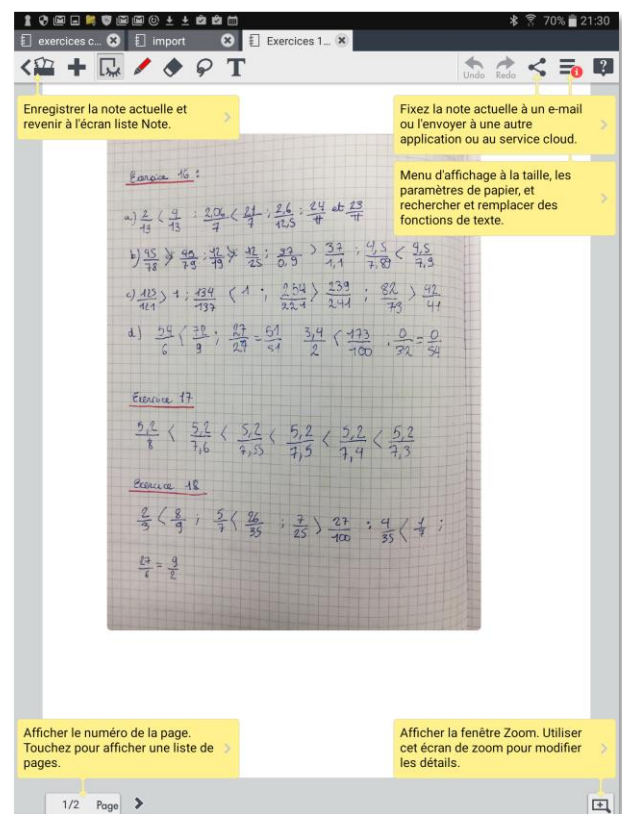 70% 21:30
exercices c... import Exercices 1...
T Undo Redo
Enregistrer la note actuelle et
revenir à l'écran liste Note.
Fixez la note actuelle à un e-mail
ou l'envoyer à une autre
application ou au service cloud.
Menu d'affichage à la taille, les
paramètres de papier, et
rechercher et remplacer des
fonctions de texte.
Exercice 16 :
a) 2/13 < 9/13 ; 2,06/7 < 21/7 ; 2,6/12,5 ; 24/π et 23/π
b) 45/78 > 45/79 ; 12/19 > 12/25 ; 37/0,9 > 37/1,1 ; 4,5/7,89 < 4,5/7,9
c) 123/121 > 1 ; 134/137 < 1 ; 234/221 > 239/241 ; 82/73 > 42/41
d) 54/6 < 72/9 ; 27/27 = 51/51 3,4/2 < 173/100 . 0/32 = 0/54
Exercice 17
5,2/8 < 5,2/7,6 < 5,2/7,55 < 5,2/7,5 < 5,2/7,4 < 5,2/7,3
Exercice 18
2/3 < 8/9 ; 5/7 < 26/35 ; 7/25 > 27/100 ; 4/35 < 1/7 ;
27/6 = 9/2
Afficher le numéro de la page.
Touchez pour afficher une liste de
pages.
Afficher la fenêtre Zoom. Utiliser
cet écran de zoom pour modifier
les détails.
1/2 Page